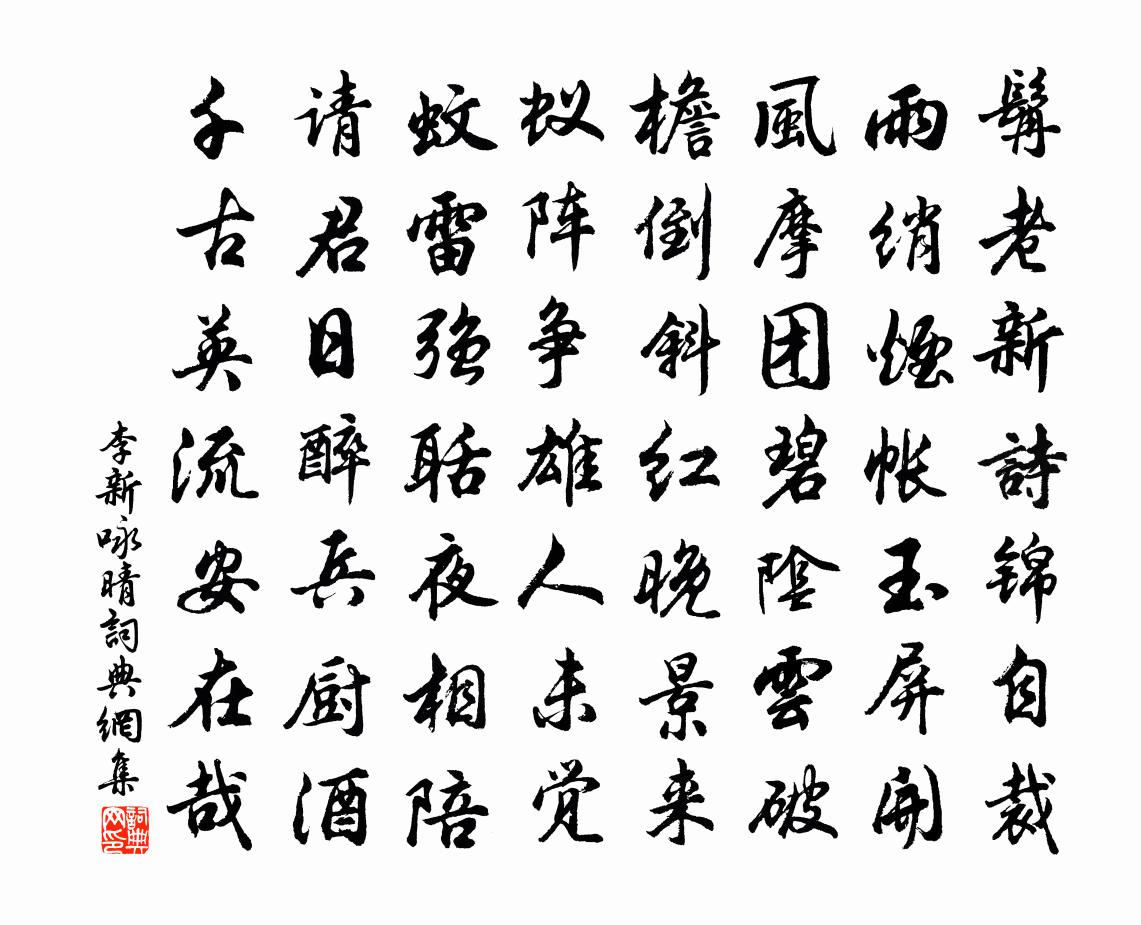 鬅老新詩锦自裁
雨绡煙帐玉屏開
風摩团碧陰雲破
檐倒斜红晚景来
蚁阵争雄人未觉
蚊雷强聒夜相陪
请君日醉兵厨酒
千古英流安在哉
李新咏晴詞典網集
詞典网印